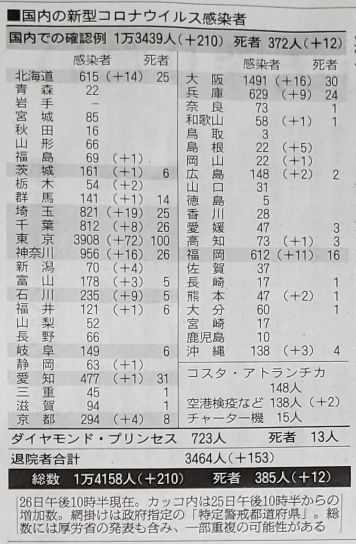 ■国内の新型コロナウイルス感染者
国内での確認例 1万3439人(+210) 死者 372人(+12)
感染者 死者
北海道 615(+14) 25
青森 22
岩手 −
宮城 85
秋田 16
山形 66
福島 69(+1)
茨城 161(+1) 6
栃木 54(+2)
群馬 141(+1) 14
埼玉 821(+19) 25
千葉 812(+8) 26
東京 3908(+72) 100
神奈川 956(+16) 26
新潟 70(+4)
富山 178(+3) 5
石川 235(+9) 5
福井 121(+1) 6
山梨 52
長野 66
岐阜 149 6
静岡 63(+1)
愛知 477(+1) 31
三重 45 1
滋賀 94 1
京都 294(+4) 8
感染者 死者
大阪 1491(+16) 30
兵庫 629(+9) 24
奈良 73 1
和歌山 58(+1) 1
鳥取 3
島根 22(+5)
岡山 22(+1)
広島 148(+2) 2
山口 31
徳島 5
香川 28
愛媛 47 3
高知 73(+1) 3
福岡 612(+11) 16
佐賀 37
長崎 17 1
熊本 47(+2) 1
大分 60 1
宮崎 17
鹿児島 10
沖縄 138(+3) 4
コスタ・アトランチカ
148人
空港検疫など 138人(+2)
チャーター機 15人
ダイヤモンド・プリンセス 723人 死者 13人
退院者合計 3464人(+153)
総数 1万4158人(+210) 死者 385人(+12)
26日午後10時半現在。カッコ内は25日午後10時半からの
増加数。網掛けは政府指定の「特定警戒都道府県」。総
数には厚労省の発表も含み、一部重複の可能性がある